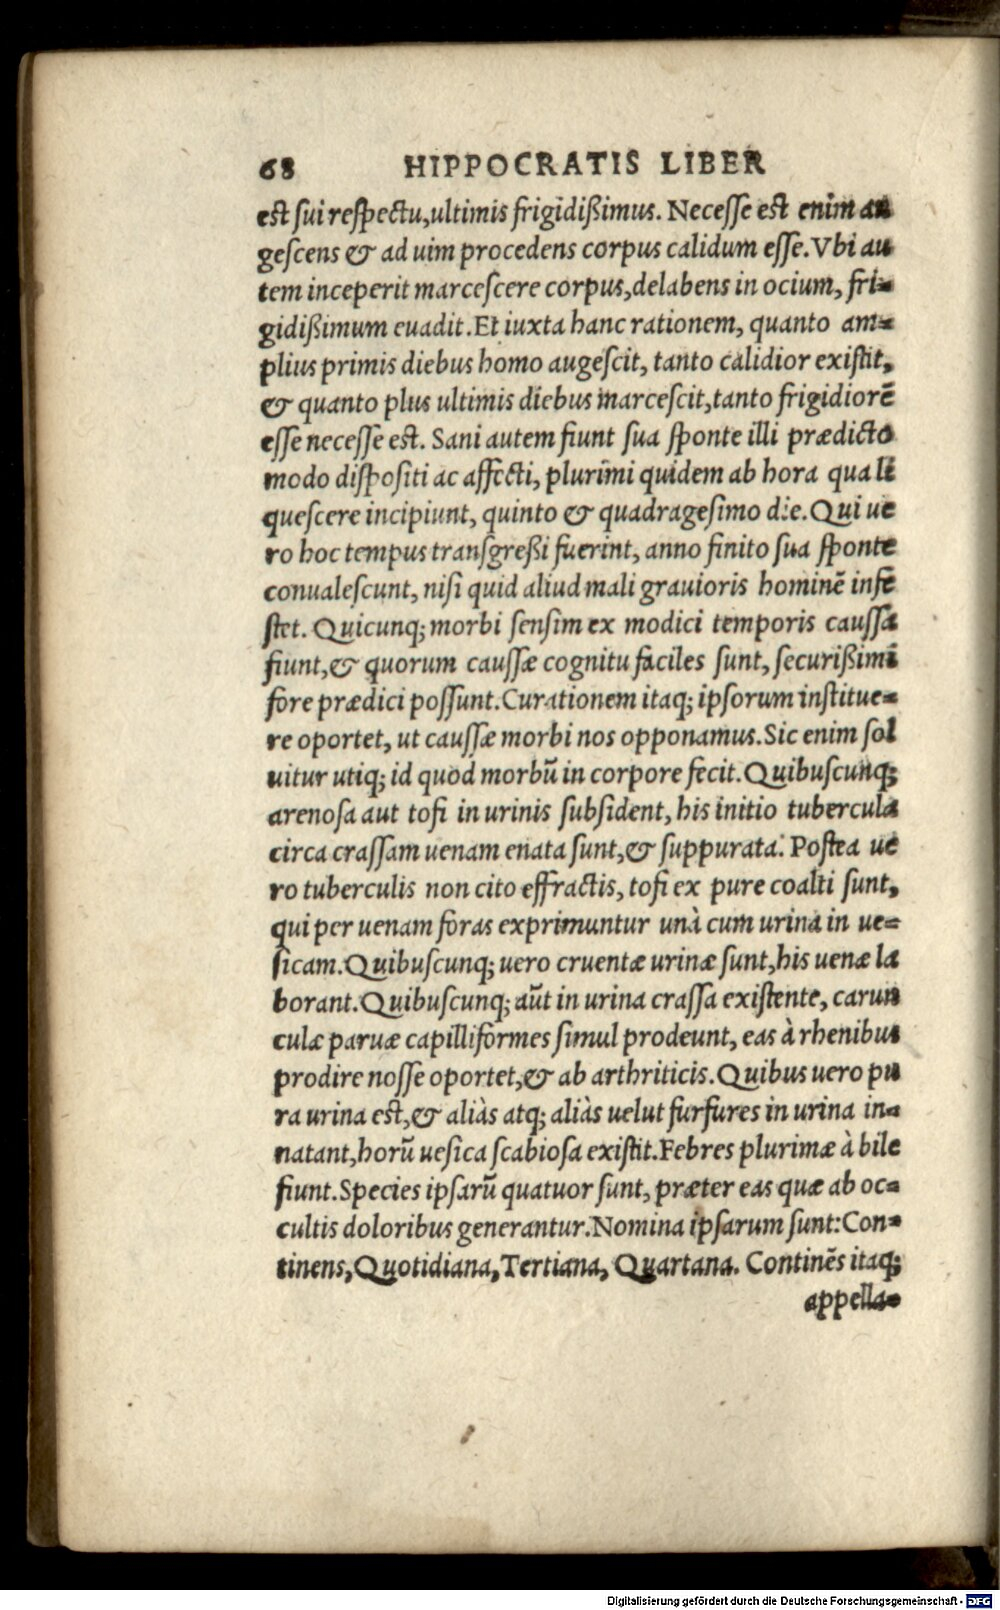 68 HIPPOCRATIS LIBER
est sui respectu,ultimis frigidißimus. Necesse est enim au
gescens & ad uim procedens corpus calidum esse.Vbi au
tem inceperit marcescere corpus,delabens in ocium, fri-
gidißimum euadit.Et iuxta hanc rationem, quanto am-
plius primis diebus homo augescit, tanto calidior existit,
& quanto plus ultimis diebus marcescit,tanto frigidiorē
esse necesse est. Sani autem fiunt sua sponte illi prædicto
modo dispositi ac affecti, plurimi quidem ab hora qua li
quescere incipiunt, quinto & quadragesimo die.Qui ue
ro hoc tempus transgreßi fuerint, anno finito sua sponte
conualescunt, nisi quid aliud mali grauioris hominē infe
stet. Quicunq; morbi sensim ex modici temporis caussa
fiunt,& quorum caussæ cognitu faciles sunt, securißimi
fore prædici possunt.Curationem itaq; ipsorum institue-
re oportet, ut caussæ morbi nos opponamus.Sic enim sol
uitur utiq; id quod morbū in corpore fecit.Quibuscunq;
arenosa aut tofi in urinis subsident, his initio tubercula
circa crassam uenam enata sunt,& suppurata. Postea ue
ro tuberculis non cito effractis, tofi ex pure coalti sunt,
qui per uenam foras exprimuntur unà cum urina in ue-
sicam.Quibuscunq; uero cruentæ urinæ sunt,his uenæ la
borant.Quibuscunq; aūt in urina crassa existente, carun
culæ paruæ capilliformes simul prodeunt, eas à rhenibus
prodire nosse oportet,& ab arthriticis.Quibus uero pu
ra urina est,& aliàs atq; aliàs uelut furfures in urina in-
natant,horū uesica scabiosa existit.Febres plurimæ à bile
fiunt.Species ipsarū quatuor sunt, præter eas quæ ab oc-
cultis doloribus generantur.Nomina ipsarum sunt:Con-
tinens,Quotidiana,Tertiana, Quartana. Continēs itaq;
appella-
Digitalisierung gefördert durch die Deutsche Forschungsgemeinschaft - DFG